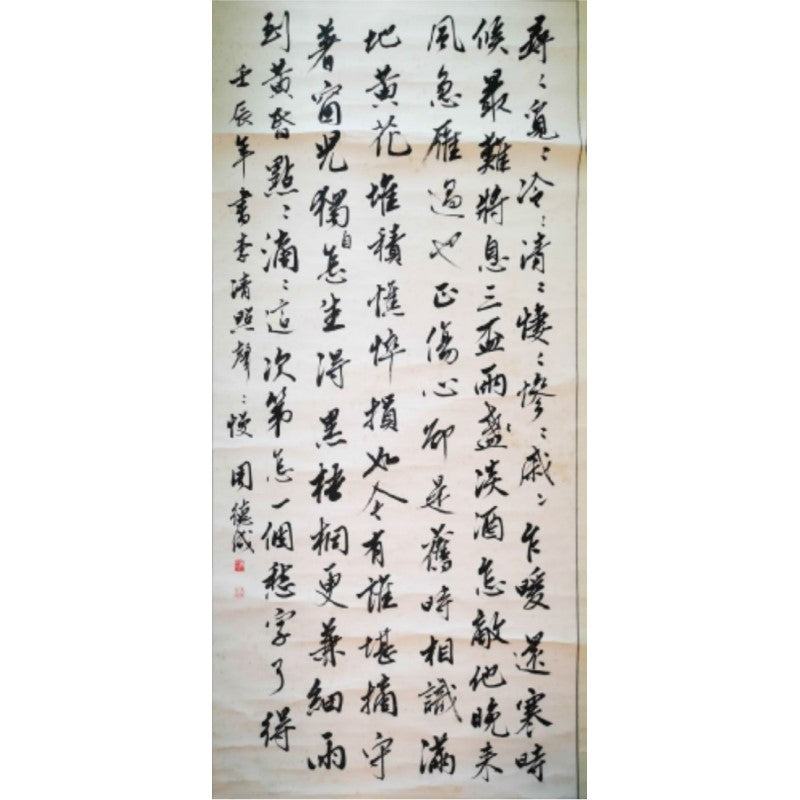 尋〻覓〻冷〻清〻悽〻慘〻戚〻乍暖還寒時
候最難將息三盃兩盞淡酒怎敵他晚来
風急雁過也正傷心卻是舊時相識滿
地黃花堆積憔悴損如今有誰堪摘守
著窗兒獨自怎生得黑梧桐更兼細雨
到黃昏點〻滴〻這次第怎一個愁字了得
壬辰年書李清照聲〻慢 周德成